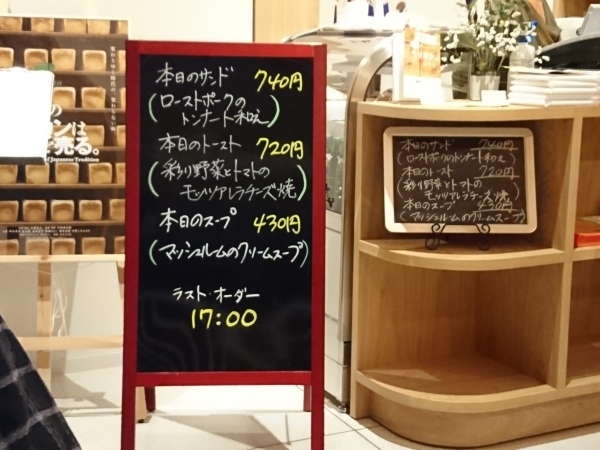 本日のサンド 740円
(ローストポークの
トンナート和え)
本日のトースト 720円
(彩り野菜とトマトの
モッツァレラチーズ焼)
本日のスープ 430円
(マッシュルームのクリームスープ)
ラスト・オーダー
17:00
本日のサンド 740円
(ローストポークのトンナート和え)
本日のトースト 720円
(彩り野菜とトマトの
モッツァレラチーズ焼)
本日のスープ 430円
(マッシュルームのクリームスープ)
の
ンは
売る。
of Japanese Tradition